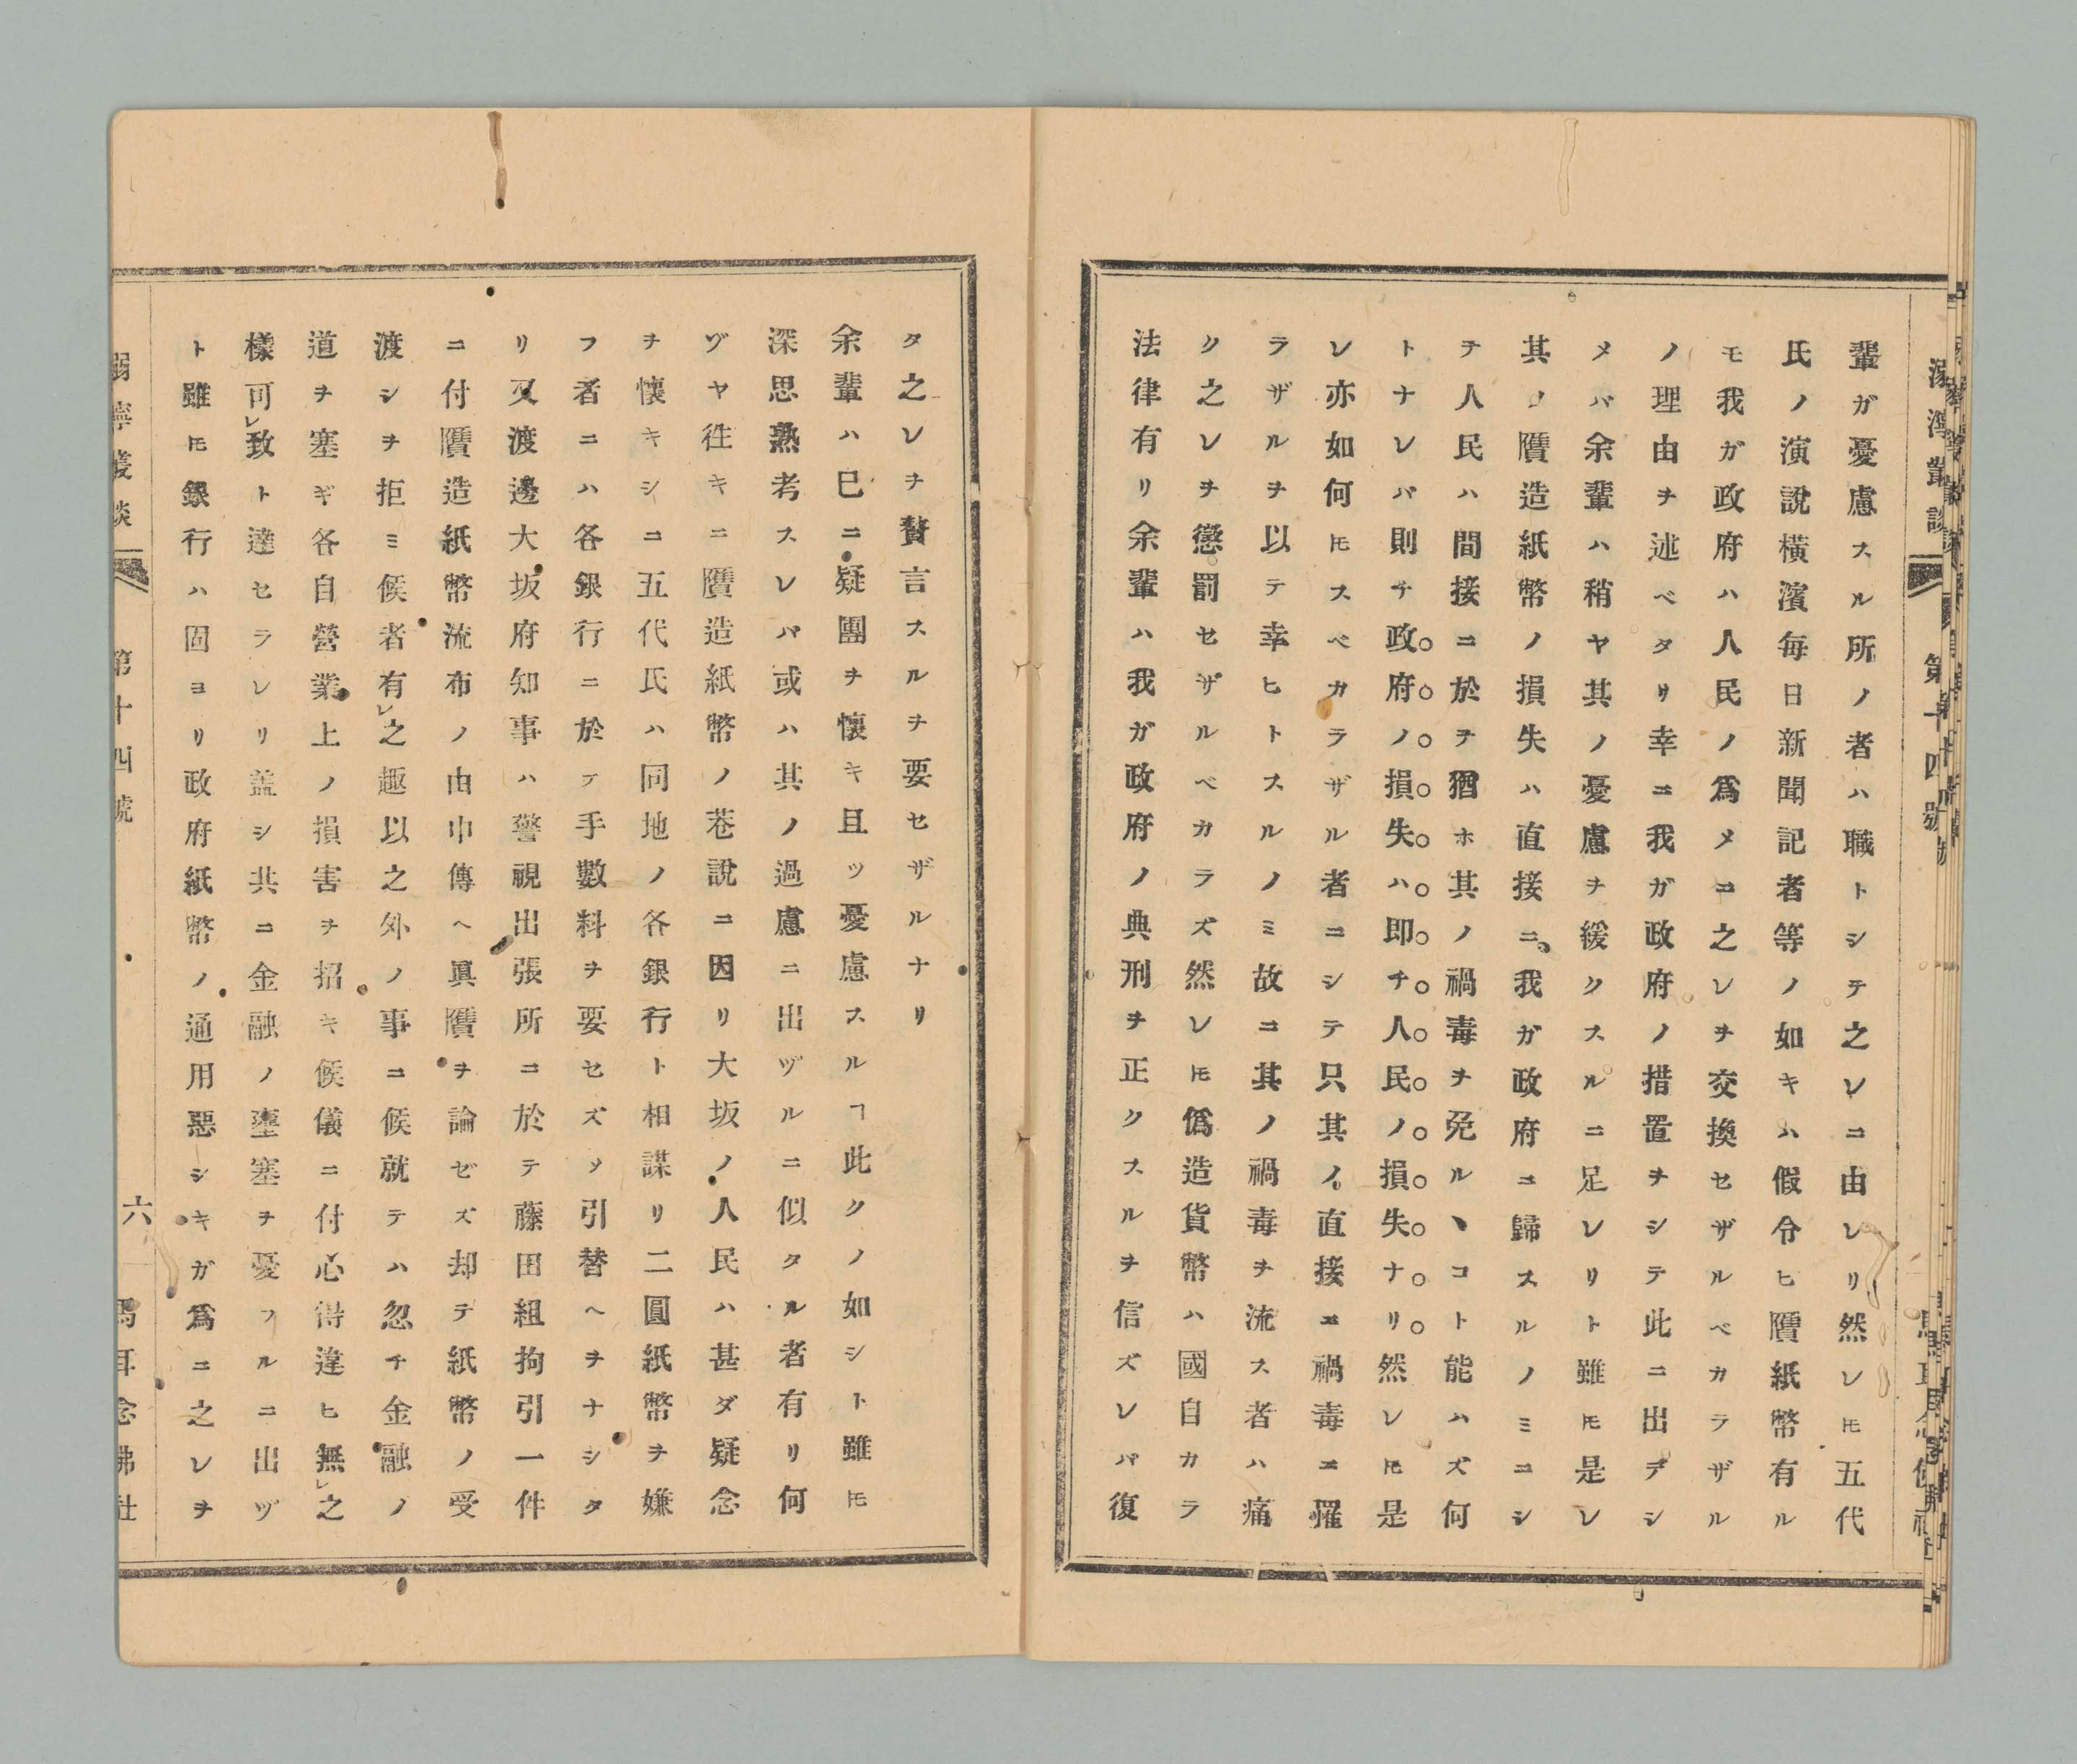 輩ガ憂慮スル所ノ者ハ職トシテ之レニ由レリ然レㇳモ五代
氏ノ演說橫濱每日新聞記者等ノ如キハ假令ヒ贋紙幣有ル
モ我ガ政府ハ人民ノ爲メニ之レヲ交換セザルベカラザル
ノ理由ヲ述ベタリ幸ニ我ガ政府ノ措置ヲシテ此ニ出デシ
メバ余輩ハ稍ヤ其ノ憂慮ヲ緩クスルニ足レリト雖ㇳモ是レ
其ノ贋造紙幣ノ損失ハ直接ニ我ガ政府ニ歸スルノミニシ
テ人民ハ間接ニ於ヲ猶ホ其ノ禍毒ヲ免ルヽコト能ハズ何
トナレバ則チ政府ノ損失ハ即チ人民ノ損失ナリ然レㇳモ是
レ亦如何ㇳモスベカラザル者ニシテ只其ノ直接ニ禍毒ニ罹
ラザルヲ以テ幸ヒトスルノミ故ニ其ノ禍毒ヲ流ス者ハ痛
ク之レヲ懲罰セザルベカラズ然レㇳモ僞造貨幣ハ國自カラ
法律有リ余輩ハ我ガ政府ノ典刑ヲ正クスルヲ信ズレバ復
タ之レヲ贅言スルヲ要セザルナリ
余輩ハ已ニ疑團ヲ懷キ且ツ憂慮スルヿ此クノ如シト雖ㇳモ
深思熟考スレバ或ハ其ノ過慮ニ出ヅルニ似タル者有リ何
ヅヤ徃キニ贋造紙幣ノ巷說ニ因リ大坂ノ人民ハ甚ダ疑念
ヲ懷キシニ五代氏ハ同地ノ各銀行ト相謀リ二圓紙幣ヲ嫌
フ者ニハ各銀行ニ於テ手數料ヲ要セズメ引替ヘヲナシタ
リ又渡邊大坂府知事ハ警視出張所ニ於テ藤田組拘引一件
ニ付贋造紙幣流布ノ由申傳ヘ眞贋ヲ論ゼズ却テ紙幣ノ受
渡シヲ拒ミ候者有レ之趣以之外ノ事ニ候就テハ忽チ金融ノ
道ヲ塞ギ各自營業上ノ損害ヲ招キ候儀ニ付心得違ヒ無レ之
樣可レ致ト達セラレリ蓋シ共ニ金融ノ壅塞ヲ憂フルニ出ヅ
ト雖ㇳモ銀行ハ固ヨリ政府紙幣ノ通用惡シキガ爲ニ之レヲ
第十四號
六